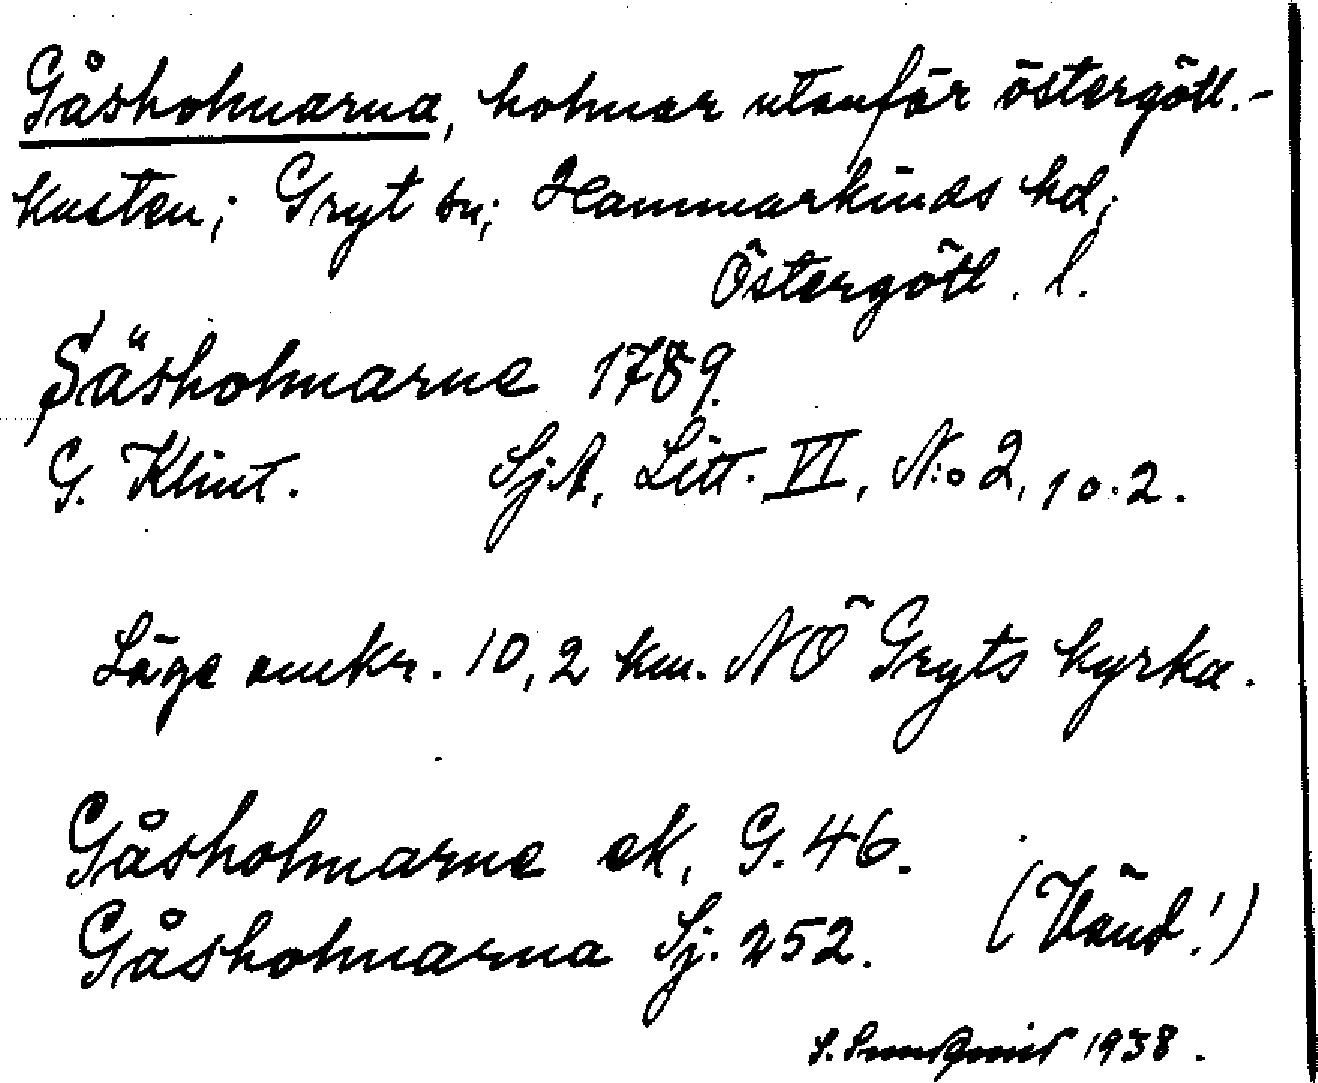 Gåsholmarna, holmar utanför östergötl.-
kusten; Gryt sn; Hammarkinds hd;
Östergötl. l.
Säsholmarne 1789.
G. Klint. SjA, Litt. VI, N:o 2, 10.2.
Läge omkr. 10,2 km. NÖ Gryts kyrka.
Gåsholmarne ek, G. 46.
Gåsholmarna Sj. 252. (Vänd!)
S. 1938.